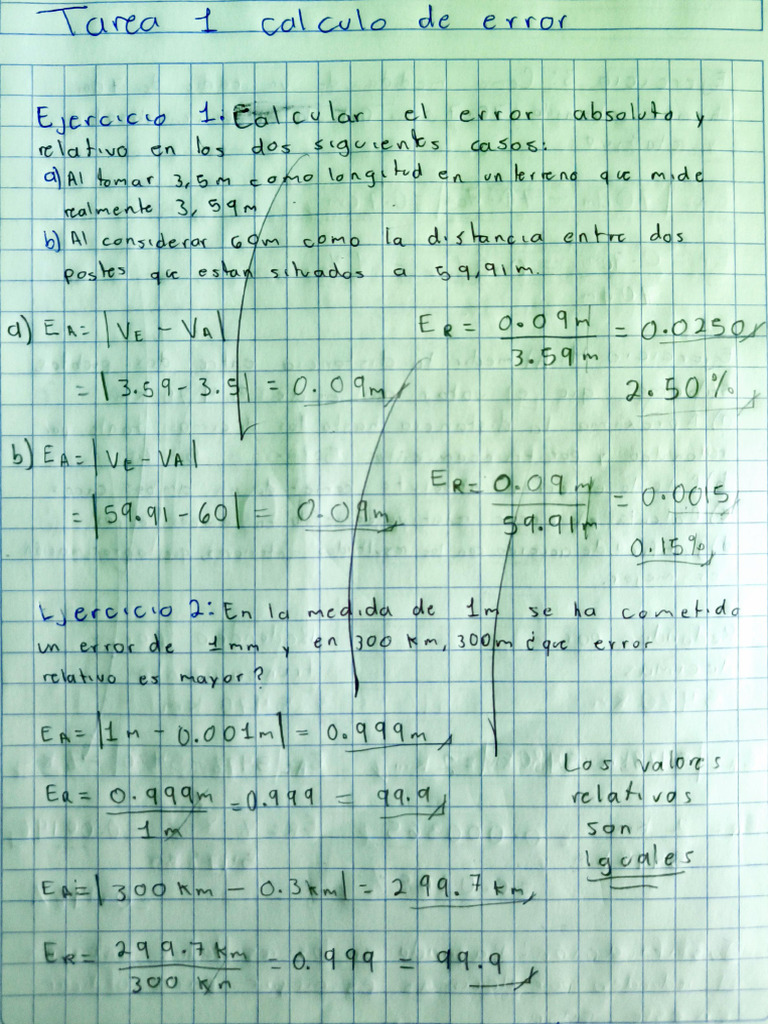 Tarea 1 calculo de error
Ejercicio 1: Calcular el error absoluto y
relativo en los dos siguientes casos:
a) Al tomar 3,5m como longitud en un terreno que mide
realmente 3,59m
b) Al considerar 60m como la distancia entre dos
postes que estan situados a 59,91m.
a) EA = |VE - VA|
= |3.59 - 3.5| = 0.09m
ER = 0.09m / 3.59m = 0.0250
2.50%
b) EA = |VE - VA|
= |59.91 - 60| = 0.09m
ER = 0.09m / 59.91m = 0.0015
0.15%
Ejercicio 2: En la medida de 1m se ha cometido
un error de 1mm y en 300 Km, 300m ¿que error
relativo es mayor?
EA = |1m - 0.001m| = 0.999m
ER = 0.999m / 1m = 0.999 = 99.9
EA = |300 Km - 0.3 Km| = 299.7 Km
ER = 299.7 Km / 300 Km = 0.999 = 99.9
Los valores
relativos
son
iguales